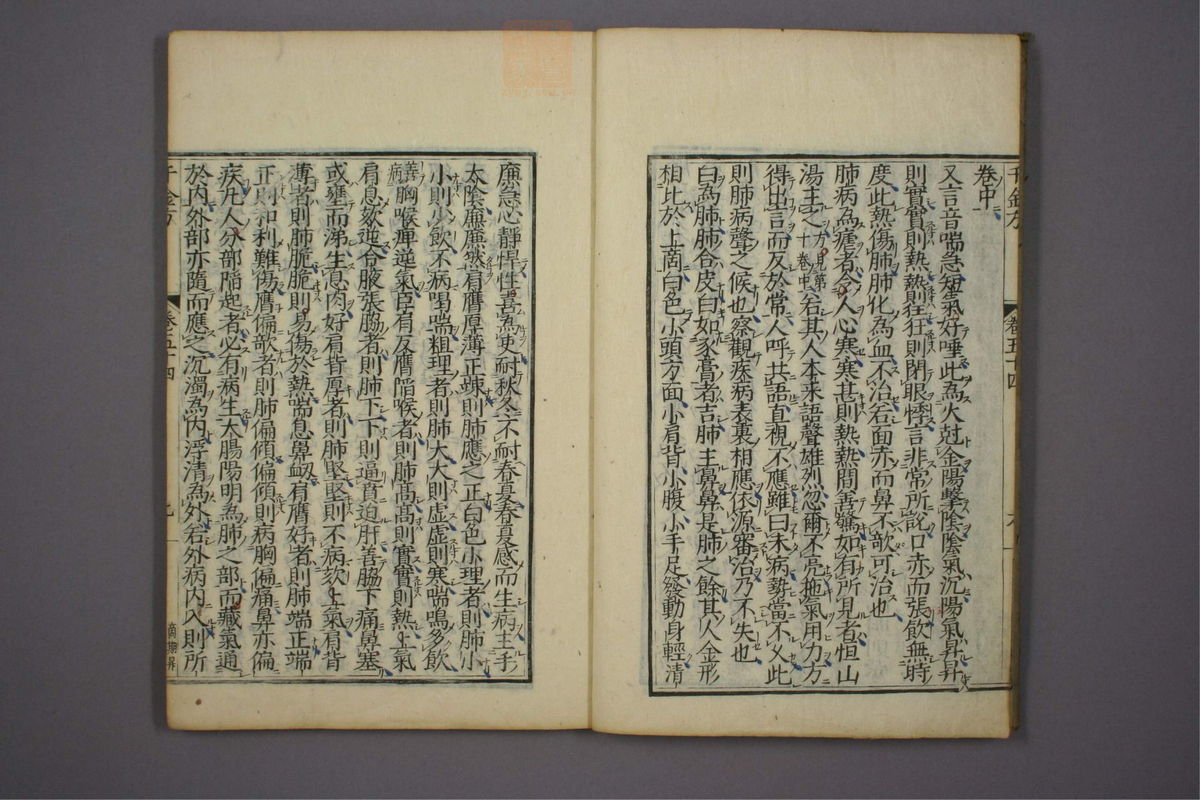 卷中
又言音喘急短氣好唾此為火尅金陽擊陰陰氣沉陽氣昇昇
則實實則熱熱則狂狂則閉眼悸言非常所說口赤而張飲無時
度此熱傷肺肺化為血不治若面赤而鼻不欹可治也
肺病為瘧者令人心寒寒甚則熱熱間善驚如有所見者恒山
湯主之方見第十卷中若其人本来語聲雄烈忽爾不亮拖氣用力方
得出言而反於常人呼共語直視不應雖曰未病勢當不久此
則肺病聲之候也察觀疾病表裏相應依源審治乃不失也
白為肺肺合皮白如豕膏者吉肺主鼻鼻是肺之餘其人金形
相比於上商白色小頭方面小肩背小腹小手足發動身輕清
千金方 卷五十四
廉急心靜悍性喜為吏耐秋冬不耐春夏春夏感而生病主手
太陰廉廉然肩膺厚薄正竦則肺應之正白色小理者則肺小
小則少飲不病喝喘粗理者則肺大大則虛虛則寒喘鳴多飲
善病胸喉痺逆氣臣肩反膺陷喉者則肺高高則實實則熱上氣
肩息欬迎合腋張脇者則肺下下則逼賁迫肝善脇下痛鼻塞
或壅而涕生息肉好肩背厚者則肺堅堅則不病欬上氣肩背
薄者則肺脆脆則易傷於熱喘息鼻衂肩膺好者則肺端正端
正則和利難傷膺偏欹者則肺偏傾偏傾則病胸偏痛鼻亦偏
疾凡人分部陷起者必有病生大腸陽明為肺之部而藏氣通
於內外部亦隨而應之沉濁為內浮清為外若外病內入則所
千金方 卷五十四 九